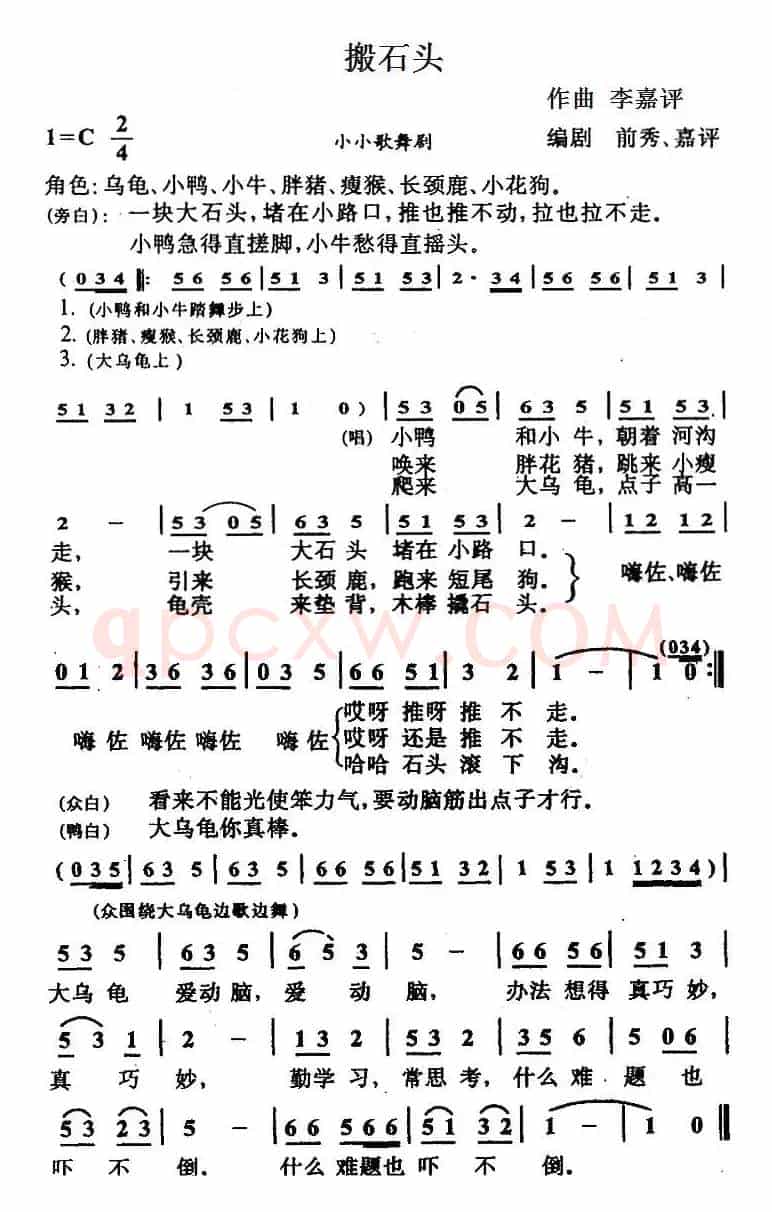 搬石头
作曲 李嘉评
1=C 2/4 小小歌舞剧 编剧 前秀、嘉评
角色:乌龟、小鸭、小牛、胖猪、瘦猴、长颈鹿、小花狗。
(旁白): 一块大石头,堵在小路口,推也推不动,拉也拉不走。
小鸭急得直搓脚,小牛愁得直摇头。
(034 ‖: 56 56 | 51 3 | 51 53 | 2· 34 | 56 56 | 51 3 |
1. (小鸭和小牛踏舞步上)
2. (胖猪、瘦猴、长颈鹿、小花狗上)
3. (大乌龟上)
51 32 | 1 53 | 1 0) | 53 05 | 63 5 | 51 53. |
(唱) 小鸭 和小牛,朝着河沟
唤来 胖花猪,跳来小瘦
爬来 大乌龟,点子高一
2 - | 53 05 | 63 5 | 51 53 | 2 - | 12 12 |
走, 一块 大石头 堵在小路口。
猴, 引来 长颈鹿,跑来短尾狗。 嗨佐、嗨佐
头, 龟壳 来垫背,木棒撬石头。
qpcxw.COM
(034)
01 2 | 36 36 | 03 5 | 66 51 | 3 2 | 1 - | 1 0 :‖
哎呀 推呀 推不走。
嗨佐 嗨佐 嗨佐 嗨佐 哎呀 还是 推不走。
哈哈 石头 滚下沟。
(众白) 看来不能光使笨力气,要动脑筋出点子才行。
(鸭白) 大乌龟你真棒。
(035 | 63 5 | 63 5 | 63 5 | 66 56 | 51 32 | 1 53 | 1 1234) |
(众围绕大乌龟边歌边舞)
53 5 | 63 5 | 6 5 3 | 5 - | 66 56 | 51 3 |
大乌龟 爱动脑,爱 动 脑, 办法 想得 真巧妙,
53 1 | 2 - | 13 2 | 53 2 | 35 6 | 5 06 |
真 巧 妙, 勤学习,常思考,什么难 . 题 也
53 23 | 5 - | 66 566 | 51 32 | 1 - | 1 0 ‖
吓 不 倒. 什么 难题也 吓 不 倒.